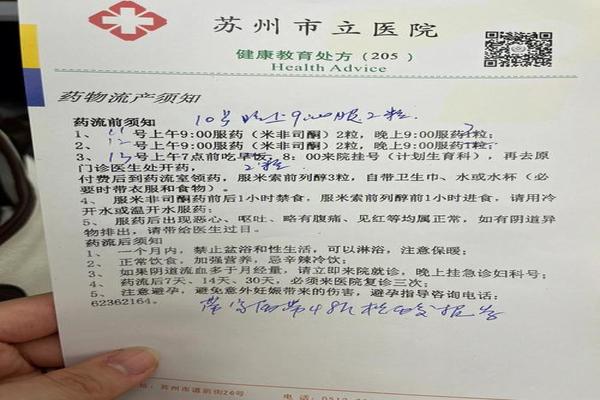 苏州市立医院
健康教育处方（205）
Health Advice
药物流产须知
10号晚上9:00服2粒.
药流前须知
1、 11 号上午9:00服药（米非司酮）2粒，晚上9:00服药1粒；
2、 12 号上午9:00服药（米非司酮）2粒，晚上9:00服药1粒；
3、 13 号上午7点前吃早饭，8：00来院挂号（计划生育科），再去原
门诊医生处开药， 2粒
付费后到药流室领药，服米索前列醇3粒，自带卫生巾、水或水杯（必
要时带衣服和食物）。
4、 服米非司酮药前后1小时禁食，服米索前列醇前1小时进食，请用冷
开水或温开水服药；
5、 服药后出现恶心、呕吐、略有腹痛、见红等均属正常，如有阴道异
物排出，请带给医生过目。
药流后须知
1、 一个月内，禁止盆浴和性生活，可以淋浴，注意保暖；
2、 正常饮食，加强营养，忌辛辣冷饮；
3、 如果阴道流血多于月经量，请立即来院就诊，晚上挂急诊妇科号；
4、 药流后7天、14天、30天，必须来医院复诊三次；
5、 注意避孕，避免意外妊娠带来的伤害，避孕指导咨询电话：
62362164。
址：苏州市道前街26号